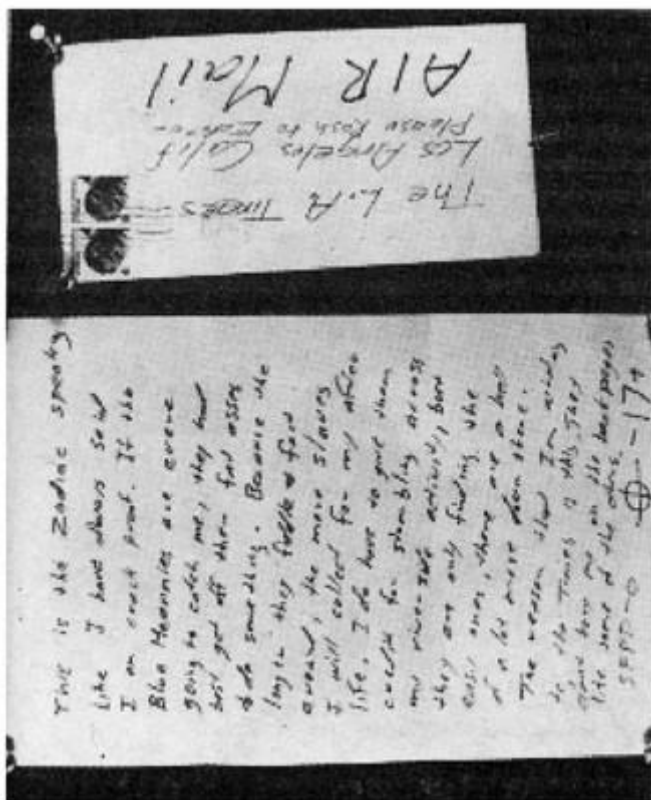 The L.A Times-
Los Angeles Calif
Please Rush to Editor
AIR Mail
This is the Zodiac speaking
Like I have always said
I am crack proof. If the
Blue Meannies are evere
going to catch me, they had
best get off their fat asses
& do something. Because the
longer they fiddle & fart
around, the more slaves
I will collect for my after
life. I do have to give them
credit for stumbling across
my riverside activity, but
they are only finding the
easy ones, there are a hell
of a lot more down there.
The reason that I'm writing
to the Times is this, They
don't bury me on the back pages
like some of the others.
SFPD-0 -17+